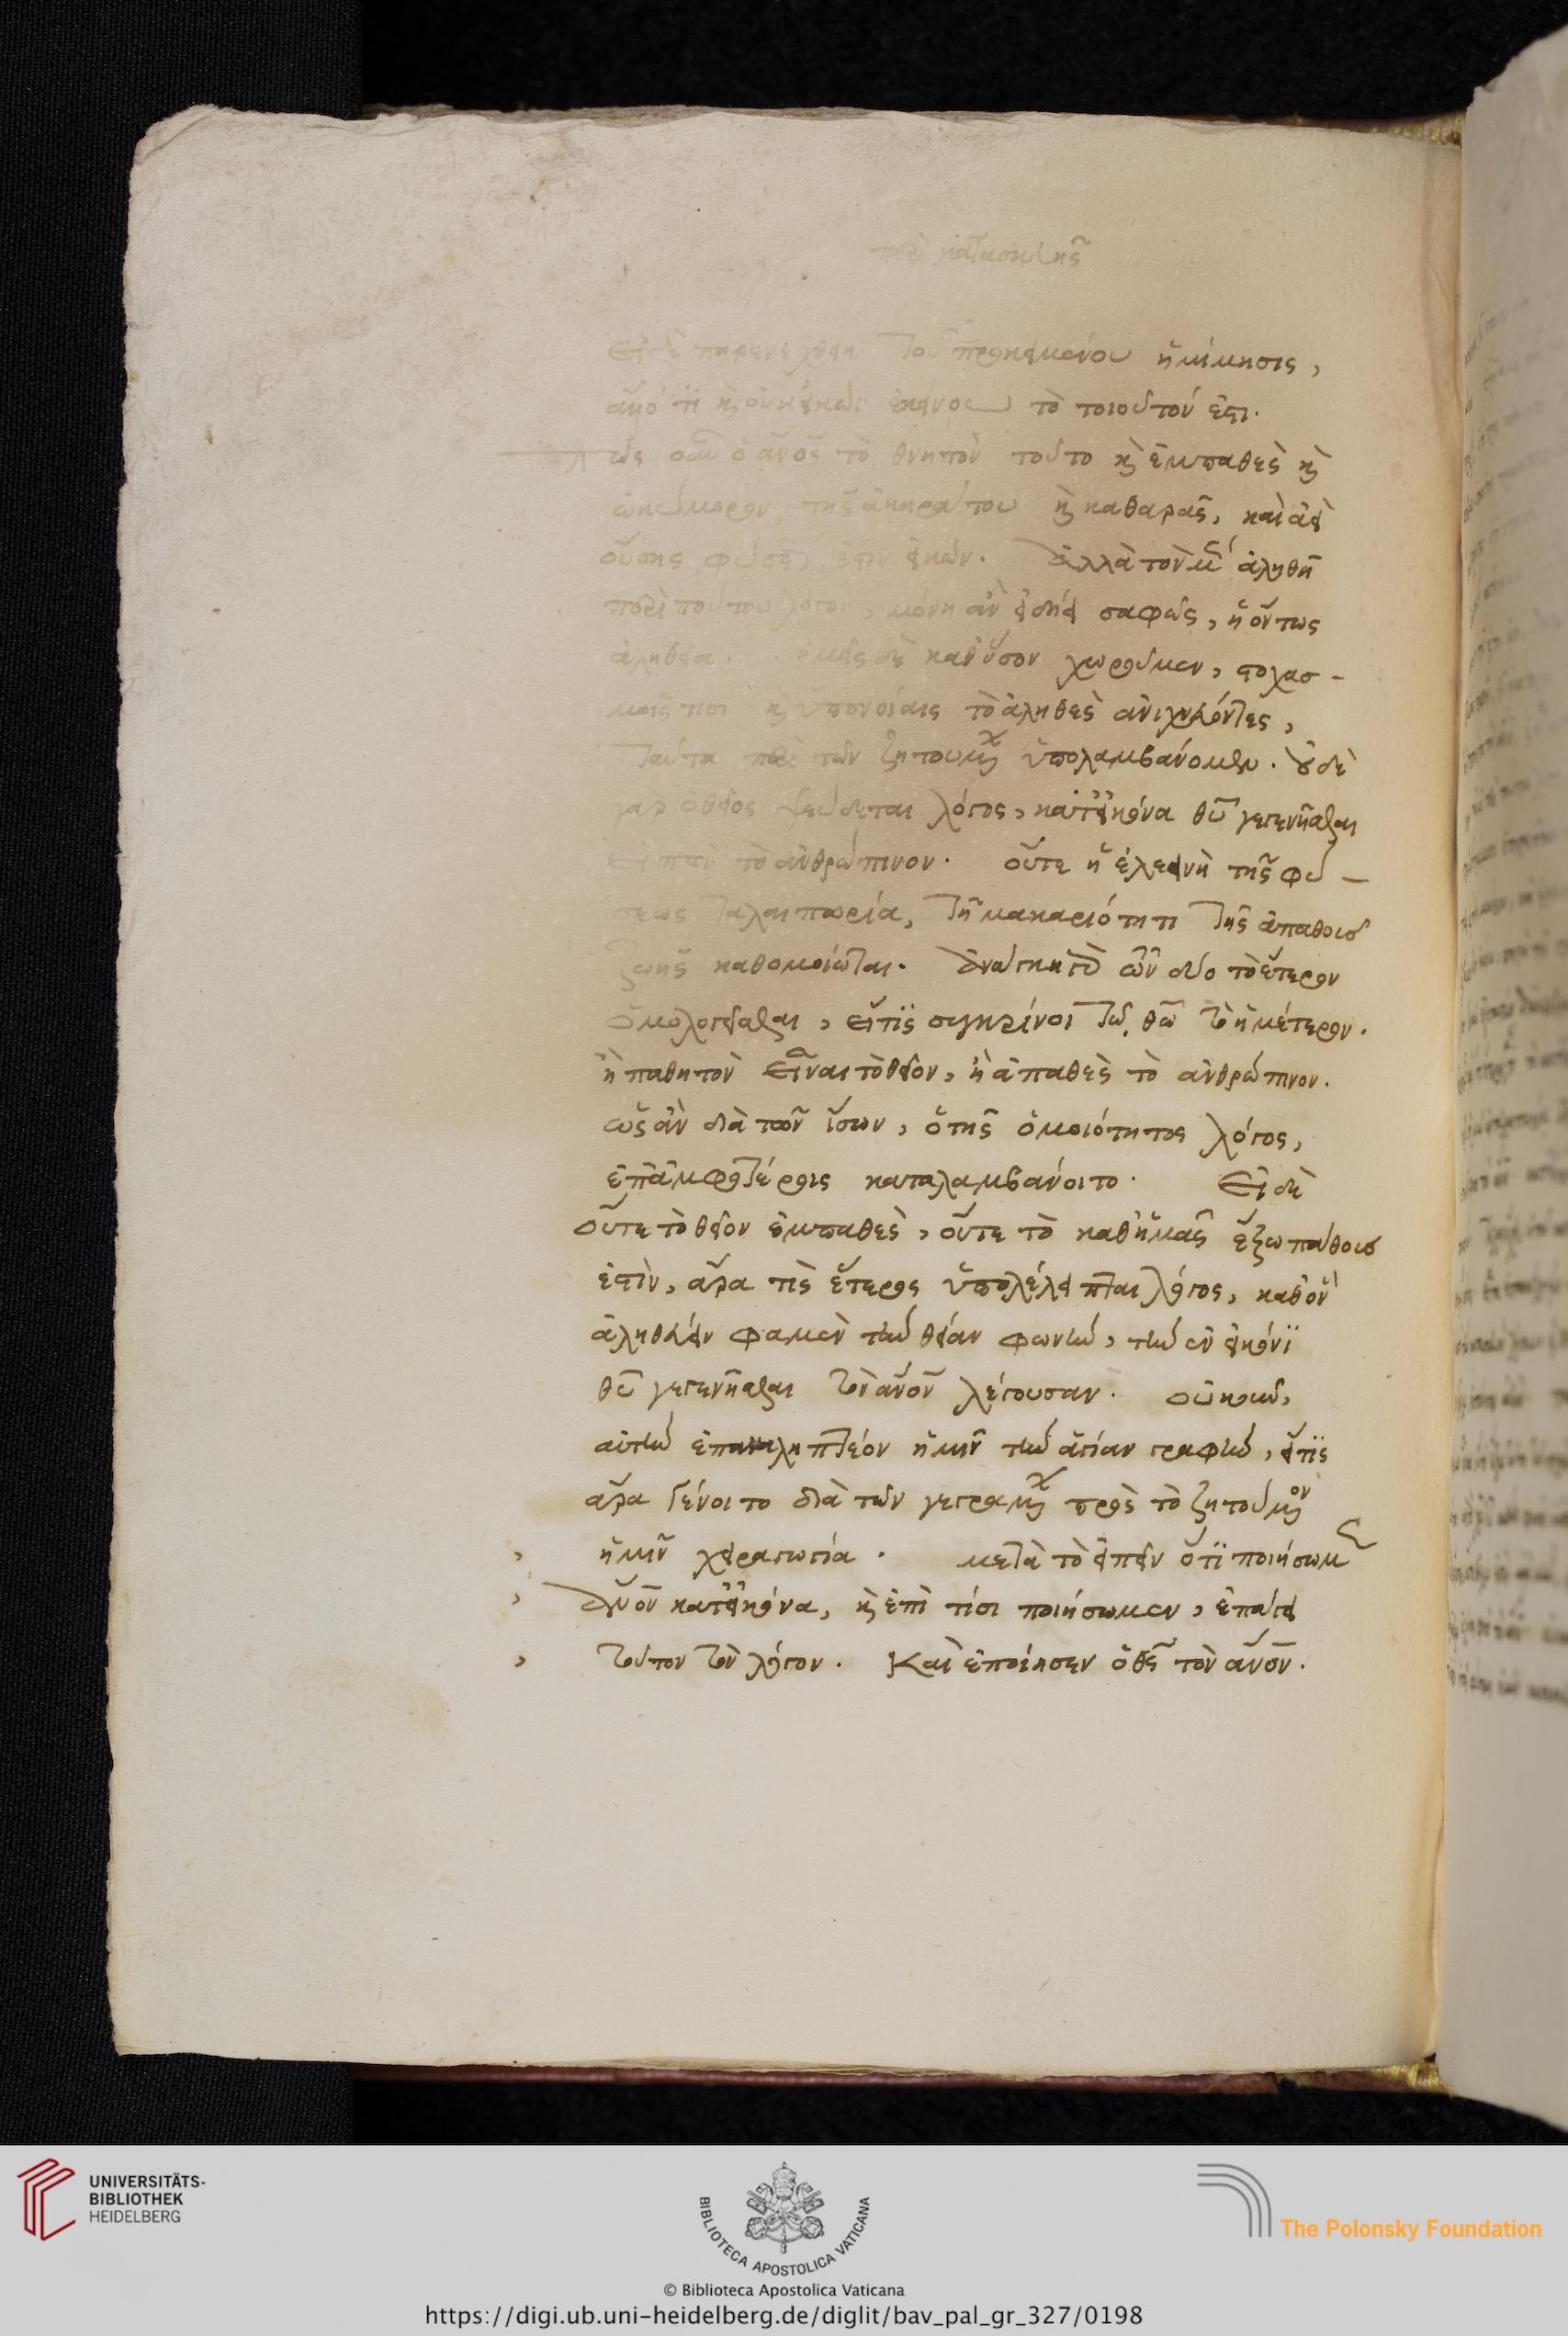 περὶ κατασκευῆς
εἰ δὲ παρενεχθείη τοῦ προκειμένου ἡ μίμησις,
ἄλλό τι κ οὐκ εἰκὼν ἐκείνου τὸ τοιοῦτόν ἐστι.
πῶς οὖν ὁ ἄνος τὸ θνητὸν τοῦτο κ ἐμπαθὲς κ
ὠκύμορον, τῆς ἀκηράτου κ καθαρᾶς, καὶ ἀεὶ
οὔσης φύσεώς ἐστιν εἰκών. ἀλλὰ τὸν μ ἀληθῆ
περὶ τούτου λόγον, μόνη ἂν εἰδείη σαφῶς, ἡ ὄντως
ἀλήθεια. ἡμεῖς δὲ καθ' ὅσον χωροῦμεν, στοχασ-
μοῖς τισι κ ὑπονοίαις τὸ ἀληθὲς ἀνιχνεύοντες,
ταῦτα περὶ τῶν ζητουμ ὑπολαμβάνομεν. οὐδὲ
γὰρ ὁ θεῖος ψεύδεται λόγος, κατ' εἰκόνα θυ γεγενῆσθαι
εἰπὼν τὸ ἀνθρώπινον. οὔτε ἡ ἐλεεινὴ τῆς φύ-
σεως ταλαιπωρία, τῇ μακαριότητι τῆς ἀπαθοῦς
ζωῆς καθομοίωται. ἀνάγκη τῶν δύο τὸ ἕτερον
ὁμολογεῖσθαι, εἴ τις συγκρίνοι τῷ θω τὸ ἡμέτερον.
ἢ παθητὸν εἶναι τὸ θεῖον, ἢ ἀπαθὲς τὸ ἀνθρώπινον.
ὡς ἂν διὰ τῶν ἴσων, ὁ τῆς ὁμοιότητος λόγος,
ἐπ' ἀμφοτέροις καταλαμβάνοιτο. εἰ δὲ
οὔτε τὸ θεῖον ἐμπαθὲς, οὔτε τὸ καθ' ἡμᾶς ἔξω πάθους
ἐστὶν, ἄρα τὶς ἕτερος ὑπολέλειπται λόγος, καθ' ὃν
ἀληθεύειν φαμὲν τὴν θείαν φωνὴν, τὴν ἐν εἰκόνι
θυ γεγενῆσθαι τὸν ἄνον λέγουσαν. οὐκοῦν,
αὐτὴν ἐπαναληπτέον ἡμῖν τὴν ἁγίαν γραφὴν, εἴ τις
ἄρα γένοιτο διὰ τῶν γεγραμ πρὸς τὸ ζητούμον
ἡμῖν χειραγωγία. μετὰ τὸ εἰπεῖν ὅτι ποιήσωμ
ἄνον κατ' εἰκόνα, κ ἐπὶ τίσι ποιήσωμεν, ἐπάγει
τοῦτον τὸν λόγον. Καὶ ἐποίησεν ὁ θς τὸν ἄνον.
UNIVERSITÄTS-
BIBLIOTHEK
HEIDELBERG
BIBLIOTECA APOSTOLICA VATICANA
The Polonsky Foundation
© Biblioteca Apostolica Vaticana
https://digi.ub.uni-heidelberg.de/diglit/bav_pal_gr_327/0198